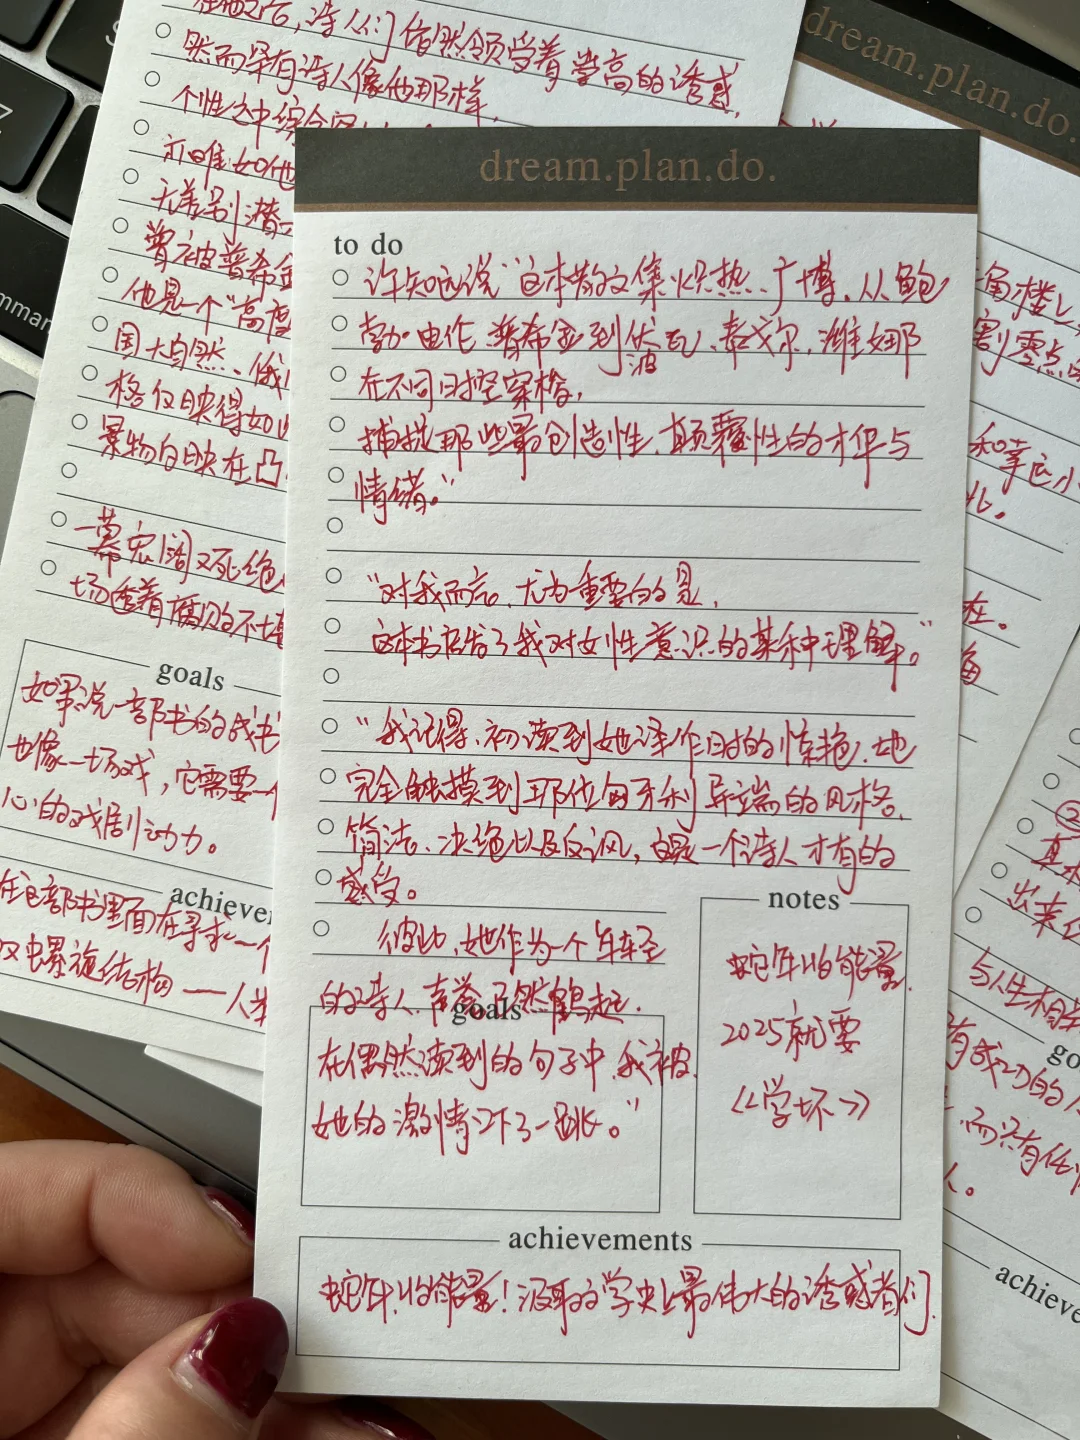 dream.plan.do.
to do
许知远说“这本散文集炽热、广博、从鲍
勃·迪伦、普希金到波伏瓦、泰戈尔、维如那
在不同时空穿梭,
捕捉那些最创造性、颠覆性的才华与
情绪。”
“对我而言、尤为重要的是,
这本书启发了我对女性意识的某种理解。”
“我记得、初读到她译作时的惊艳、她
完全触摸到那位匈牙利异端的风格、
简洁、决绝以及反讽,自是一个诗人才有的
感受。
彼时,她作为一个年轻
的诗人,声誉已然鹊起.
goals
在偶然读到的句子中,我被
她的激情吓了一跳。”
notes
蛇年的能量.
2025就要
《《学坏》》
achievements
蛇年的能量!汲取文学史上最伟大的诱惑者们.
诗人们依然领受着崇高的诱惑,
然而罕有诗人像他那样,
个性之中综合
不唯如他
无差别潜
曾被普希金
他是一个“高度
国大自然、俄
格仅映得如此
景物自映在凸
一幕宏阔又死绝
场透着腐败的不堪
goals
如果说一部书的成书
也像一场戏,它需要一个
心的戏剧动力。
在这部书里面在寻求一个
双螺旋结构——人生
dream.plan.do.
角楼上
割零点
和幸运小
北。
在。
②
出来
与人生相
有成功的人
,而只有任
人。
go
achieve